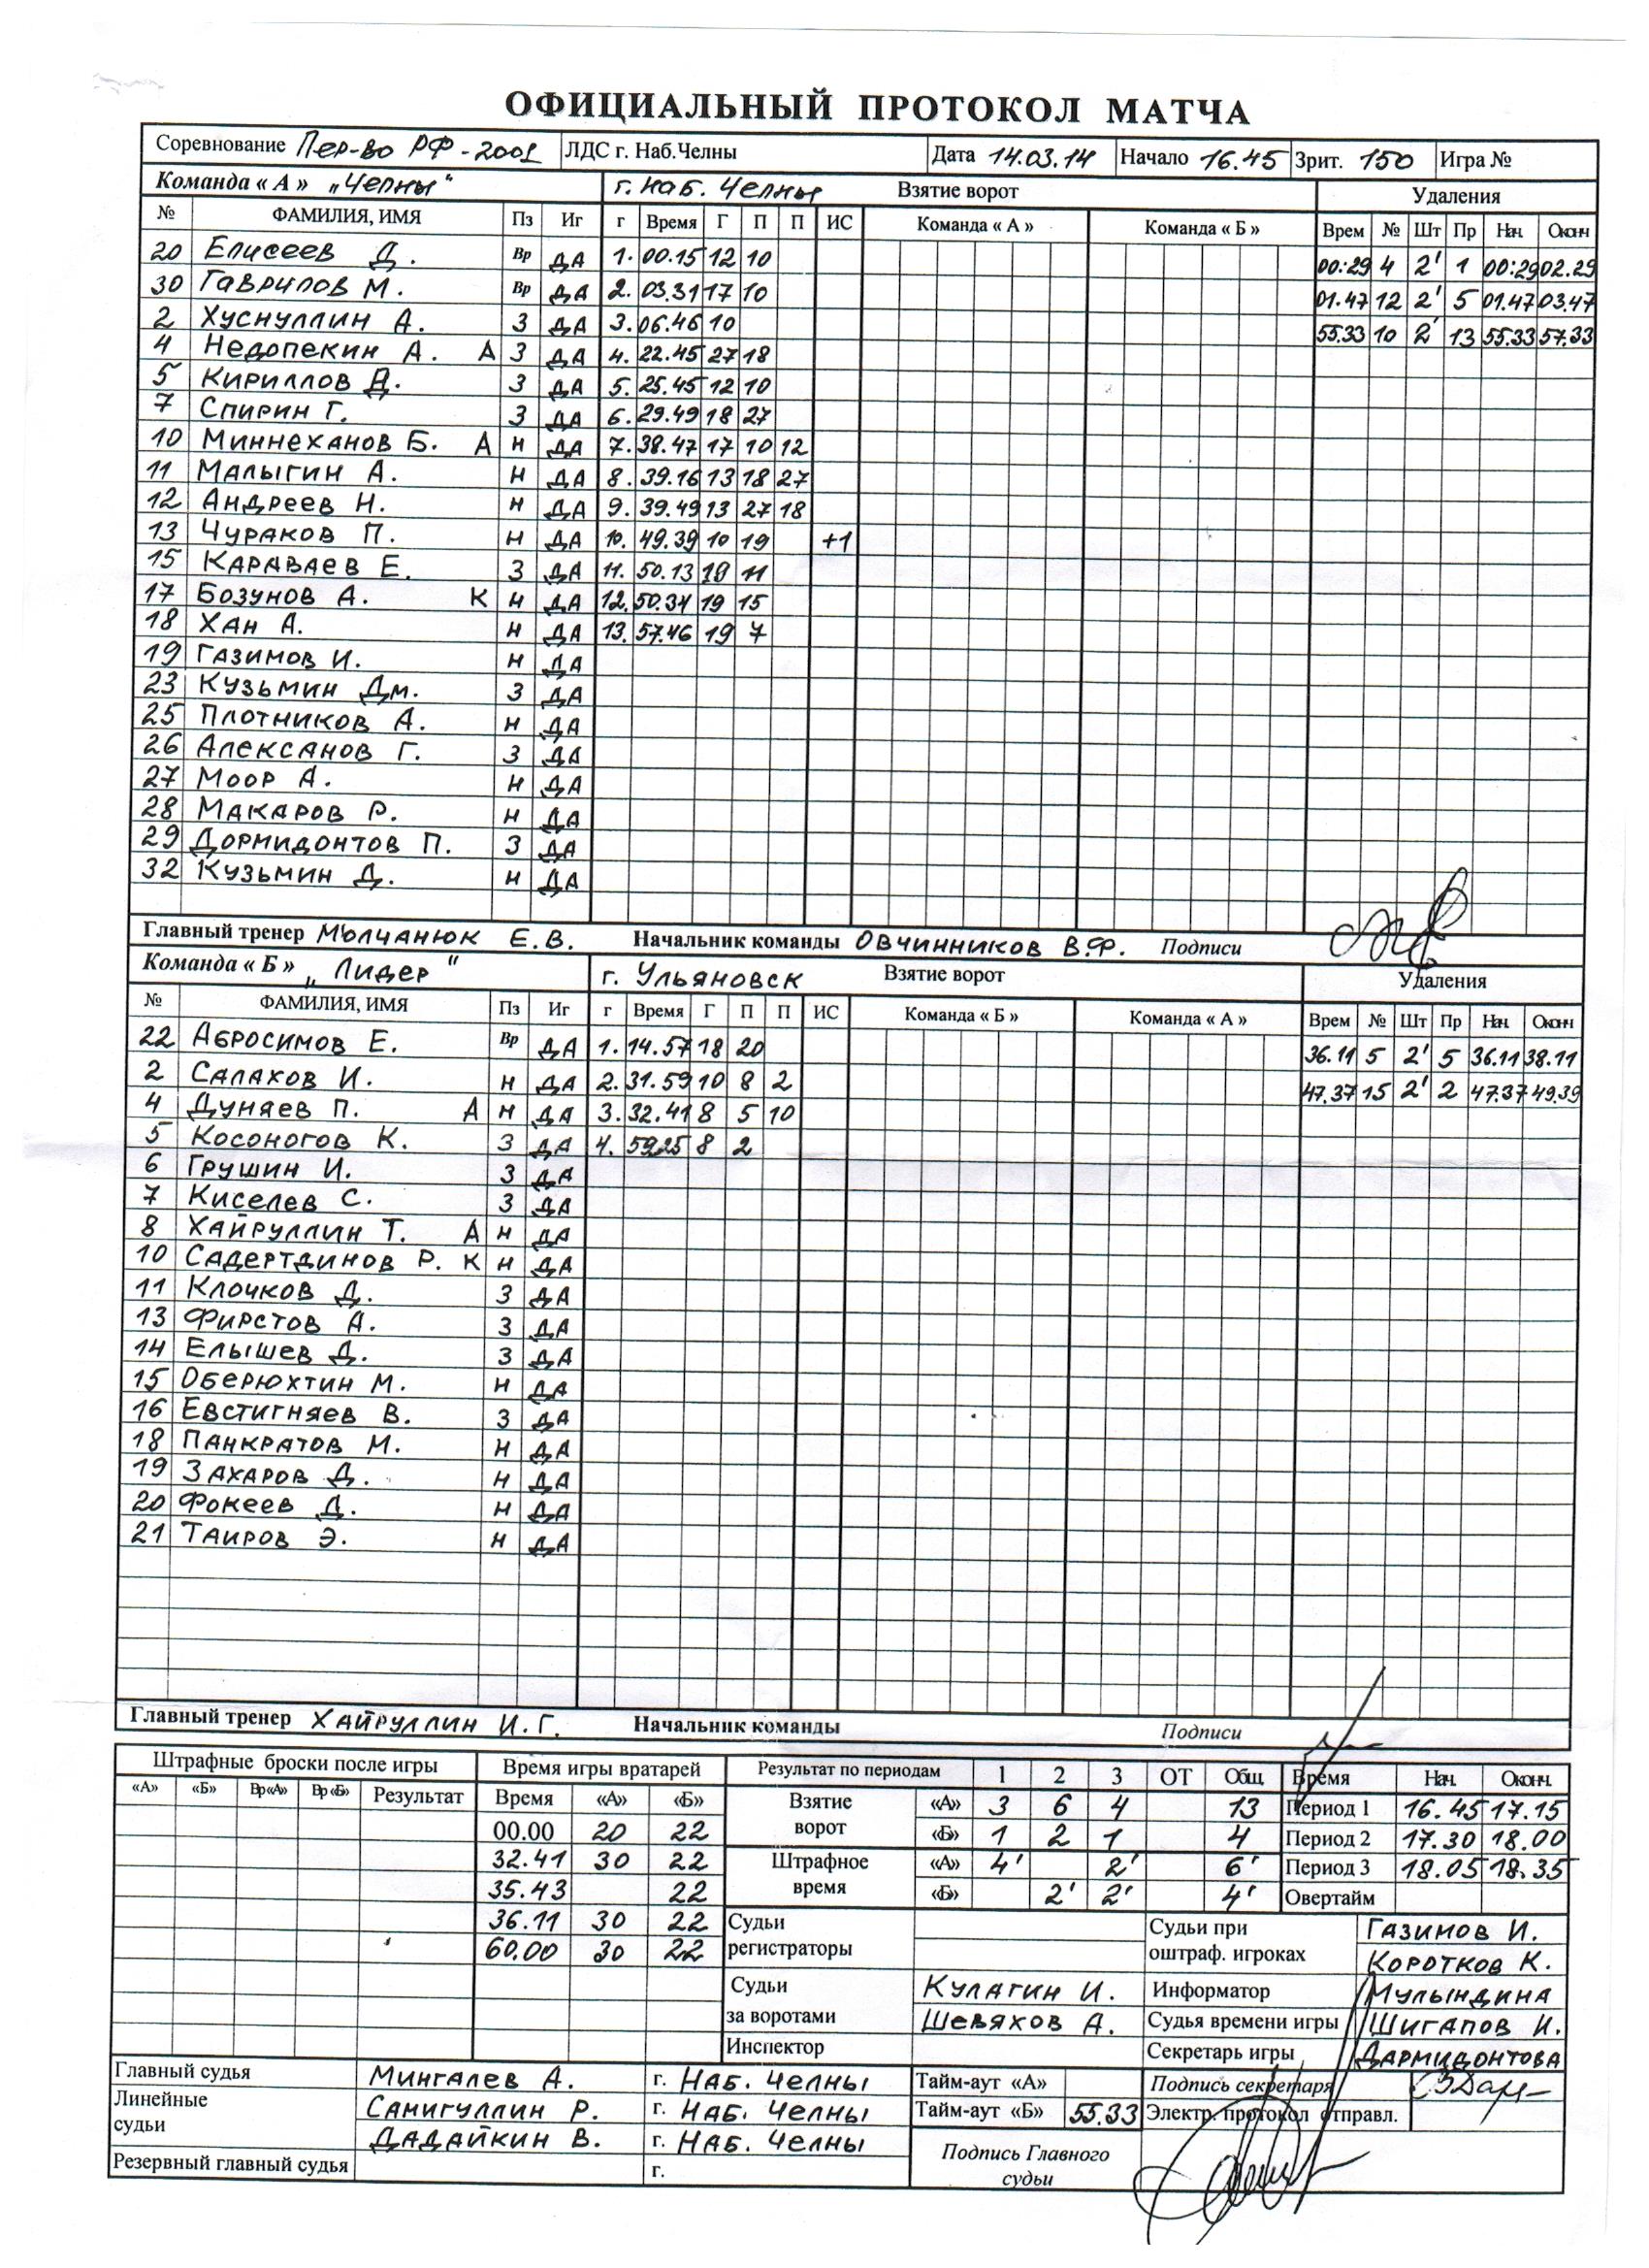 ОФИЦИАЛЬНЫЙ ПРОТОКОЛ МАТЧА
Соревнование Пер-во РФ-2001 ЛДС г. Наб.Челны Дата 14.03.14 Начало 16.45 Зрит. 150 Игра №
Команда « А » „Челны" г. Наб. Челны Взятие ворот Удаления
№ ФАМИЛИЯ, ИМЯ Пз Иг г Время Г П П ИС Команда « А » Команда « Б » Врем № Шт Пр Нач. Оконч
20 Елисеев Д. Вр ДА 1. 00.15 12 10 00:29 4 2' 1 00:29 02.29
30 Гаврилов М. Вр ДА 2. 03.31 17 10 01.47 12 2' 5 01.47 03.47
2 Хуснуллин А. З ДА 3. 06.46 10 55.33 10 2' 13 55.33 57.33
4 Недопекин А. А З ДА 4. 22.45 27 18
5 Кириллов Д. З ДА 5. 25.45 12 10
7 Спирин Г. З ДА 6. 29.49 18 27
10 Миннеханов Б. А Н ДА 7. 38.47 17 10 12
11 Малыгин А. Н ДА 8. 39.16 13 18 27
12 Андреев Н. Н ДА 9. 39.49 13 27 18
13 Чураков П. Н ДА 10. 49.39 10 19 +1
15 Караваев Е. З ДА 11. 50.13 19 11
17 Бозунов А. К Н ДА 12. 50.34 19 15
18 Хан А. Н ДА 13. 57.46 19 7
19 Газимов И. Н ДА
23 Кузьмин Дм. З ДА
25 Плотников А. Н ДА
26 Алексанов Г. З ДА
27 Моор А. Н ДА
28 Макаров Р. Н ДА
29 Дормидонтов П. З ДА
32 Кузьмин Д. Н ДА
Главный тренер Молчанюк Е.В. Начальник команды Овчинников В.Ф. Подписи
Команда « Б » „Лидер" г. Ульяновск Взятие ворот Удаления
№ ФАМИЛИЯ, ИМЯ Пз Иг г Время Г П П ИС Команда « Б » Команда « А » Врем № Шт Пр Нач. Оконч
22 Абросимов Е. Вр ДА 1. 14.57 18 20 36.11 5 2' 5 36.11 38.11
2 Салахов И. Н ДА 2. 31.59 10 8 2 47.37 15 2' 2 47.37 49.39
4 Дуняев П. А Н ДА 3. 32.41 8 5 10
5 Косоногов К. З ДА 4. 59.25 8 2
6 Грушин И. З ДА
7 Киселев С. З ДА
8 Хайруллин Т. А Н ДА
10 Садертдинов Р. К Н ДА
11 Клочков Д. З ДА
13 Фирстов А. З ДА
14 Елышев Д. З ДА
15 Оберюхтин М. Н ДА
16 Евстигняев В. З ДА
18 Панкратов М. Н ДА
19 Захаров Д. Н ДА
20 Фокеев Д. Н ДА
21 Таиров Э. Н ДА
Главный тренер Хайруллин И.Г. Начальник команды Подписи
Штрафные броски после игры Время игры вратарей Результат по периодам 1 2 3 ОТ Общ. Время Нач. Оконч.
«А» «Б» Вр«А» Вр«Б» Результат Время «А» «Б» Взятие ворот «А» 3 6 4 13 Период 1 16.45 17.15
00.00 20 22 «Б» 1 2 1 4 Период 2 17.30 18.00
32.41 30 22 Штрафное время «А» 4' 2' 6' Период 3 18.05 18.35
35.43 22 «Б» 2' 2' 4' Овертайм
36.11 30 22 Судьи регистраторы Судьи при оштраф. игроках Газимов И.
60.00 30 22 Коротков К.
Судьи за воротами Кулагин И. Информатор Мулындина
Шевяхов А. Судья времени игры Шигапов И.
Инспектор Секретарь игры Дармидонтова
Главный судья Мингалев А. г. Наб. Челны Тайм-аут «А» Подпись секретаря
Линейные судьи Самигуллин Р. г. Наб. Челны Тайм-аут «Б» 55.33 Электр. протокол отправл.
Дадайкин В. г. Наб. Челны Подпись Главного судьи
Резервный главный судья г.